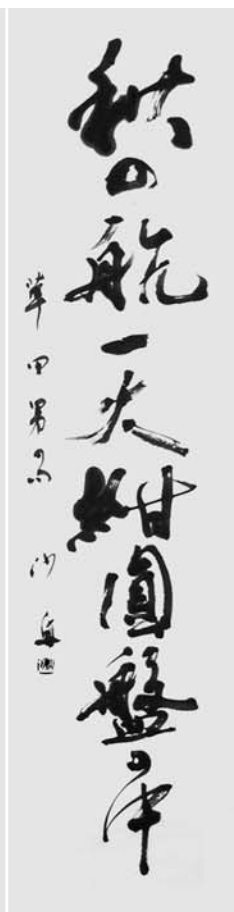 秋の航一大紺圓盤の中
草田男